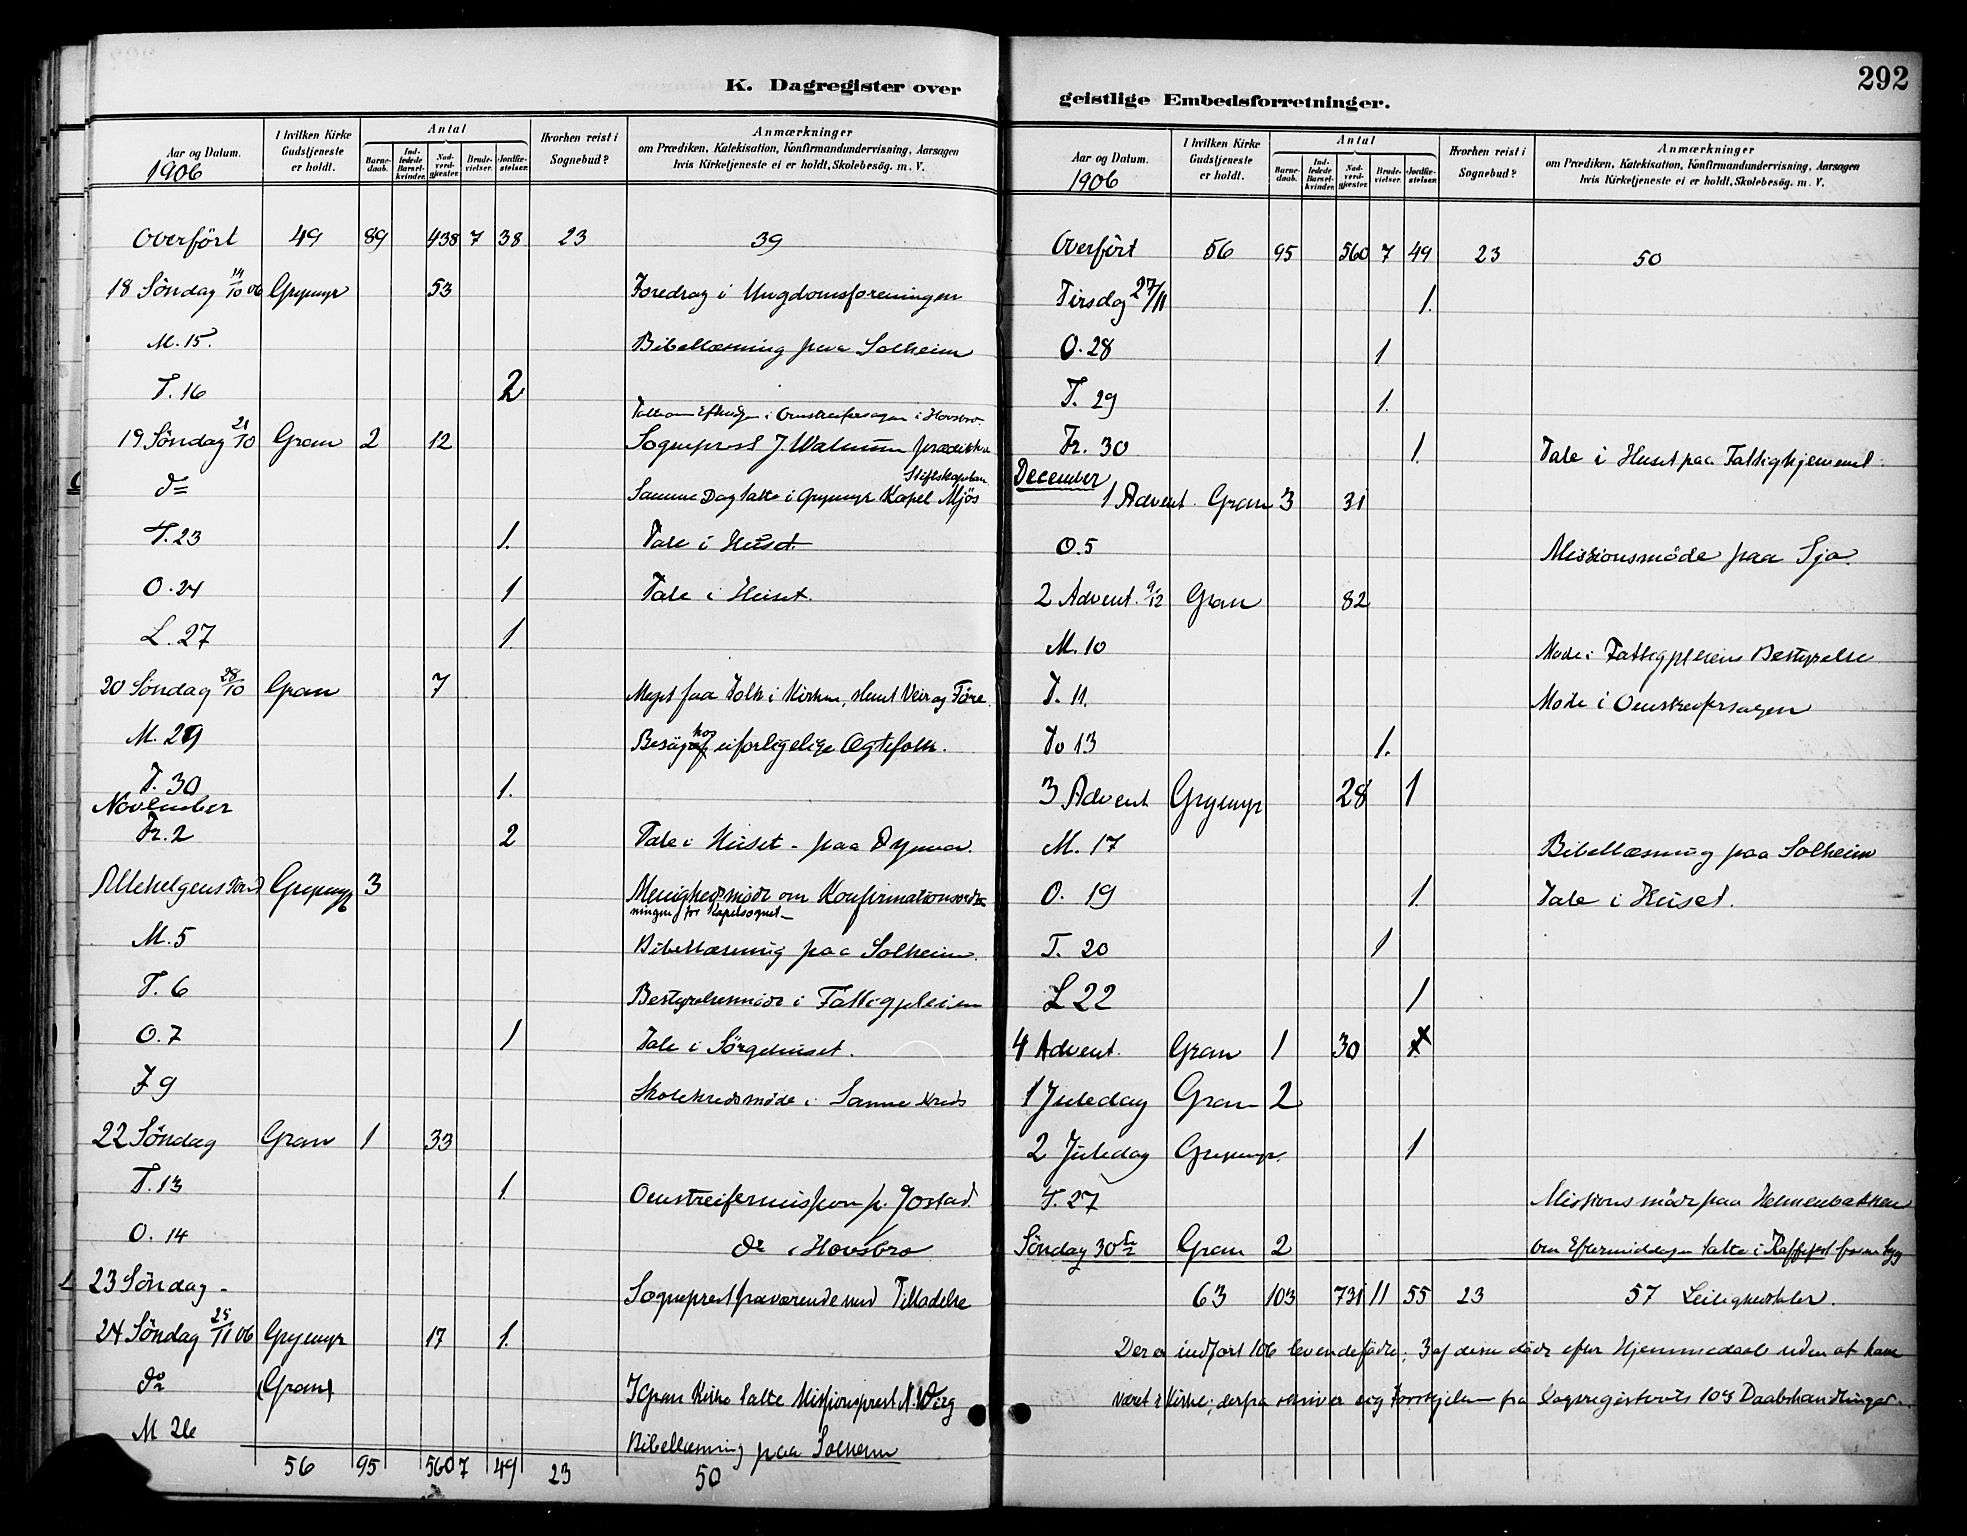 292
K. Dagregister over
geistlige Embedsforretninger.
Aar og Datum.
1906
I hvilken Kirke Gudstjeneste er holdt.
Antal
Barnedaab.
Indledede Barselkvinder.
Nadverdgjæster.
Brudevielser.
Jordfæstelser.
Hvorhen reist i Sognebud?
Anmærkninger
om Prædiken, Katekisation, Konfirmandundervisning, Aarsagen
hvis Kirketjeneste ei er holdt, Skolebesög. m. V.
Overfört 49 89 438 7 38 23 39
18 Söndag 14/10 06 Grymyr 53 Foredrag i Ungdomsforeningen
M. 15. Bibellæsning paa Solheim
T. 16 2
i Omstreifersagen i Hovsbro.
19 Söndag 21/10 Gran 2 12 Sogneprest J. Walnum prædikte
Stiftskapelan
do Samme Dag talte i Grymyr Kapel Mjös
T. 23 1. Tale i Huset
O. 24 1 Tale i Huset.
L. 27 1.
20 Söndag 28/10 Gran 7 Meget faa Folk i Kirken, slemt Veir og Före.
M. 29 Besög hos uforligelige Ægtefolk.
T. 30 1.
November
Fr. 2 2 Tale i Huset - paa Dynna.
Allehelgens Grymyr 3 Menighedsmöde om Konfirmationsord-
ningen for Kapelsognet -
M. 5 Bibellæsning paa Solheim.
T. 6 Bestyrelsesmöde i Fattigpleien
O. 7 1 Tale i Sörgehuset.
F 9 Skolekredsmöde i Sanne Kreds
22 Söndag Gran 1 33
T. 13 1. Omstreifermission p. Jostad.
O. 14 do i Hovsbro
23 Söndag - Sogneprest fraværende med Tilladelse
24 Söndag 25/11 06 Grymyr 17 1.
do (Gran) I Gran Kirke talte Missionsprest N.
M 26 Bibellæsning paa Solheim
56 95 560 7 49 23 50
Aar og Datum.
1906
I hvilken Kirke Gudstjeneste er holdt.
Antal
Barnedaab.
Indledede Barselkvinder.
Nadverdgjæster.
Brudevielser.
Jordfæstelser.
Hvorhen reist i Sognebud?
Anmærkninger
om Prædiken, Katekisation, Konfirmandundervisning, Aarsagen
hvis Kirketjeneste ei er holdt, Skolebesög. m. V.
Overfört 56 95 560 7 49 23 50
Tirsdag 27/11 1.
O. 28 1
T. 29 1.
Fr. 30 1. Tale i Huset paa Fattighjemmet.
December
1 Advent. Gran 3 31
O. 5 Missionsmöde paa Sjo.
2 Advent. 9/12 Gran 82
M. 10 Möde i Fattigpleiens Bestyrelse
T. 11. Möde i Omstreifersagen
To 13 1.
3 Advent Grymyr 28 1
M. 17 Bibellæsning paa Solheim
O. 19 1 Tale i Huset.
T. 20 1
L 22 1
4 Advent. Gran 1 30
1 Juledag Gran 2
2 Juledag Grymyr. 1
T. 27 Missionsmöde paa Helmenbakken
Söndag 30te Gran 2 Om Eftermiddagen talte i Kaffefest
63 103 731 11 55 23 57 Leilighedstaler.
Der er indfört 106 levendefödte; 3 af disse döde efter Hjemmedaab uden at have
været i Kirke; derfra skriver sig Forskjellen fra Dagsregisterets 103 Daabshandlinger.